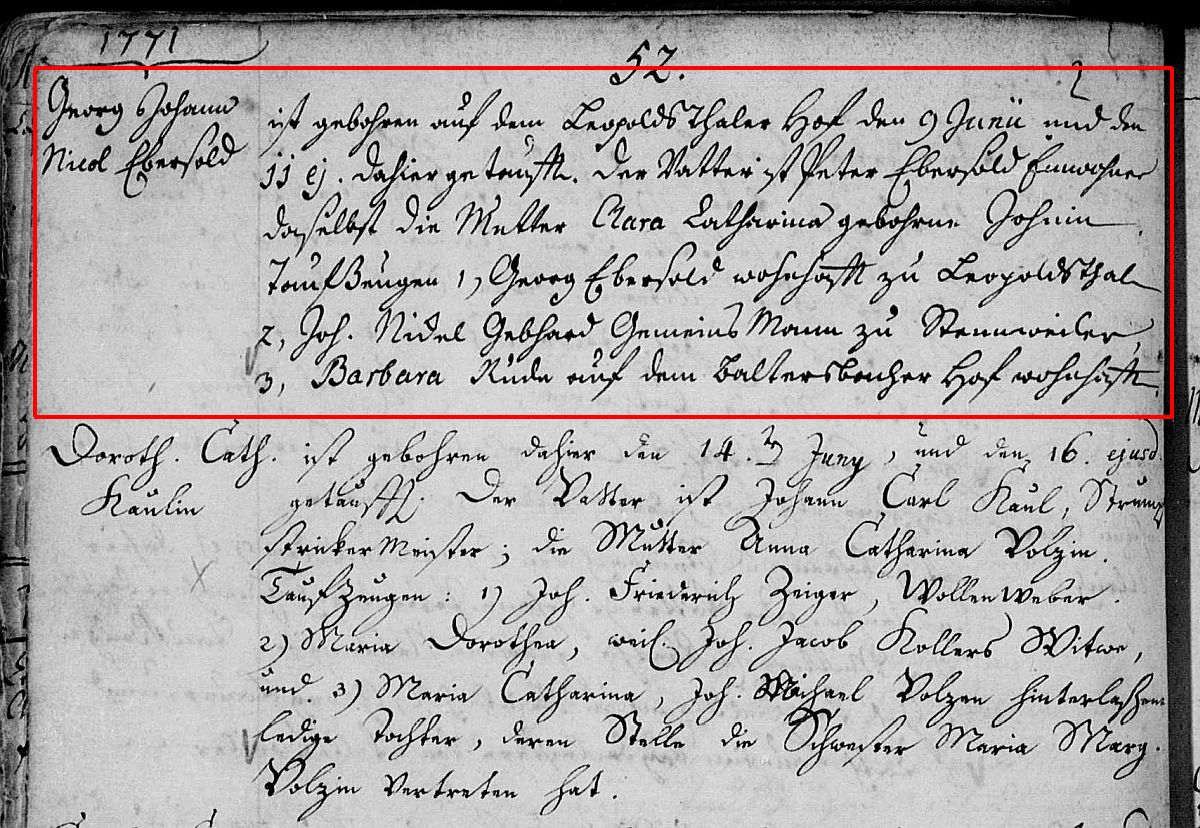 1771
52.
Georg Johann
Nicol Ebersold
ist gebohren auf dem Leopolds Thaler Hof den 9 Junii und den
11 ej. dahier getaufft. Der Vatter ist Peter Ebersold Einwohner
daselbst die Mutter Clara Catharina gebohrne Johnin
Taufzeugen 1, Georg Ebersold wohnhafft zu Leopoldsthal
2, Joh. Nickel Gebhard Gemeins Mann zu Stennweiler,
3, Barbara auf dem baltersbacher Hof wohnhafft.
Doroth. Cath.
Kaulin
ist gebohren dahier den 14. Juny, und den 16. ejusd
getaufft. Der Vatter ist Johann Carl Kaul, Strumpf
stricker Meister; die Mutter Anna Catharina Volzin.
Taufzeugen: 1) Joh. Friederich Zeiger, Wollenweber.
2) Maria Dorothea, weil. Joh. Jacob Kollers Witwe,
und 3) Maria Catharina, Joh. Michael Volzen hinterlaßene
ledige Tochter, deren Stelle die Schwester Maria Marg.
Volzin vertreten hat.